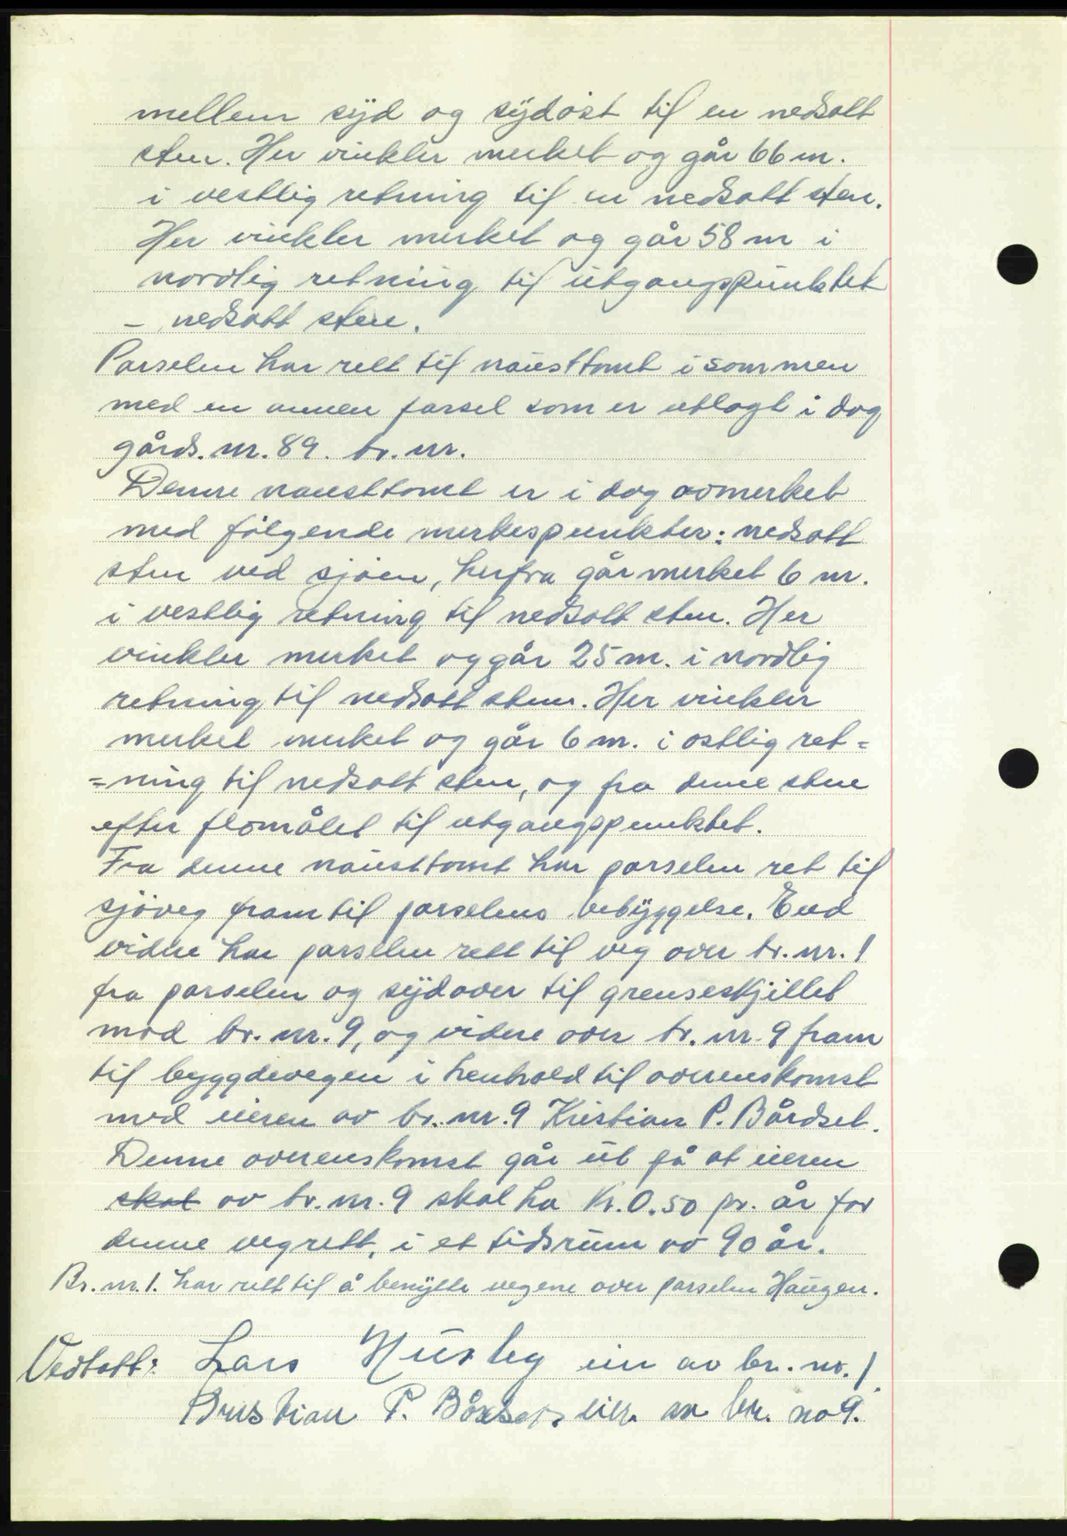 mellem syd og sydøst til en nedsatt
sten. Her vinkler merket og går 66 m.
i vestlig retning til en nedsatt sten.
Her vinkler merket og går 58 m i
nordlig retning til utgangspunktet
- nedsatt sten.
Parselen har rett til nausttomt i sammen
med en annen parsel som er utlagt i dag
gårds. nr. 89. br. nr.
Denne nausttomt er i dag avmerket
med følgende merkespunkter: nedsatt
sten ved sjøen, herfra går merket 6 m.
i vestlig retning til nedsatt sten. Her
vinkler merket og går 25 m. i nordlig
retning til nedsatt sten. Her vinkler
merket merket og går 6 m. i østlig ret=
=ning til nedsatt sten, og fra denne sten
efter flomålet til utgangspunktet.
Fra denne nausttomt har parselen ret til
sjøveg fram til parselens bebyggelse. End
videre har parselen rett til veg over br. nr. 1
fra parselen og sydover til grenseskjillet
mod br. nr. 9, og videre over br. nr. 9 fram
til byggdevegen i henhold til overenskomst
med eieren av br. nr. 9 Kristian P. Bårdset.
Denne overenskomst går ut på at eieren
skal av br. nr. 9 skal ha Kr. 0.50 pr. år for
denne vegrett, i et tidsrum av 90 år.
Br. nr. 1. har rett til å benytte vegene over parselen Haugen.
Vedtatt: Lars Husby eier av br. nr. 1.
Kristian P. Bårdset eier av br. no 9.